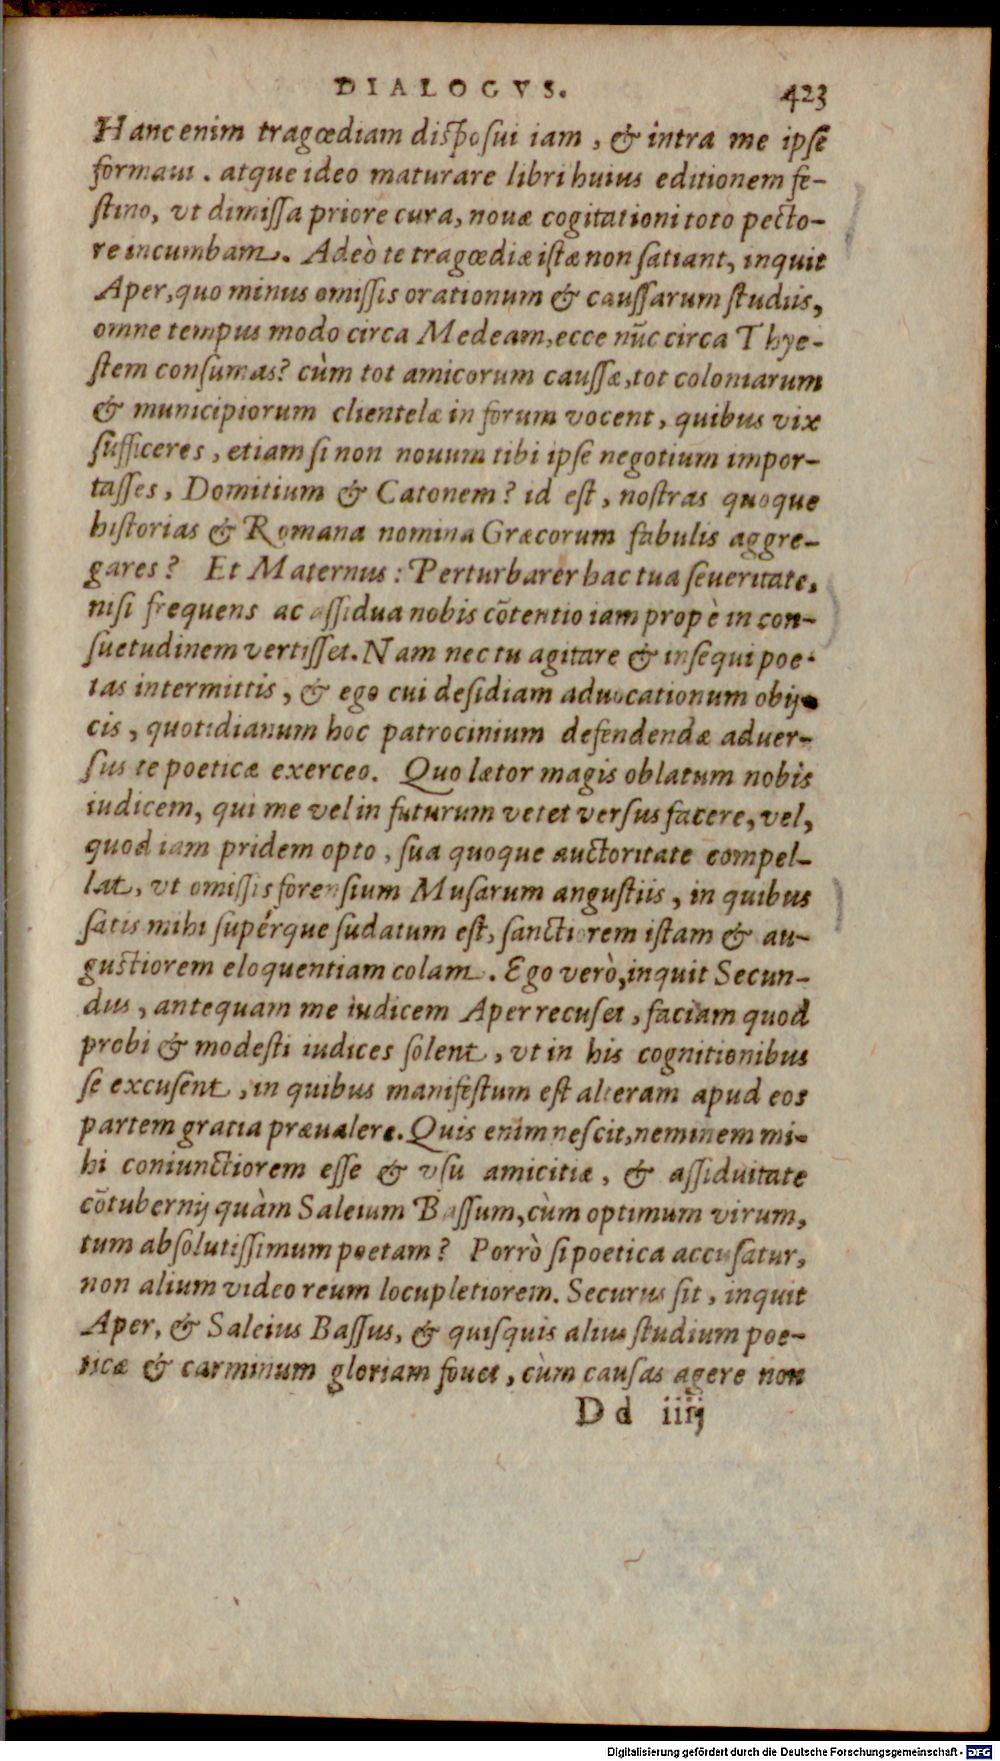 DIALOGVS. 423
Hanc enim tragœdiam disposui iam, & intra me ipse
formaui. atque ideo maturare libri huius editionem fe-
stino, vt dimissa priore cura, nouæ cogitationi toto pecto-
re incumbam. Adeò te tragœdiæ istæ non satiant, inquit
Aper, quo minus omissis orationum & caussarum studiis,
omne tempus modo circa Medeam, ecce nũc circa Thye-
stem consumas? cùm tot amicorum caussæ, tot coloniarum
& municipiorum clientelæ in forum vocent, quibus vix
sufficeres, etiam si non nouum tibi ipse negotium impor-
tasses, Domitium & Catonem? id est, nostras quoque
historias & Romana nomina Græcorum fabulis aggre-
gares? Et Maternus: Perturbarer hac tua seueritate,
nisi frequens ac assidua nobis cõtentio iam propè in con-
suetudinem vertisset. Nam nec tu agitare & insequi poe-
tas intermittis, & ego cui desidiam aduocationum obij-
cis, quotidianum hoc patrocinium defendendæ aduer-
sus te poeticæ exerceo. Quo lætor magis oblatum nobis
iudicem, qui me vel in futurum vetet versus facere, vel,
quod iam pridem opto, sua quoque auctoritate compel-
lat, vt omissis forensium Musarum angustiis, in quibus
satis mihi supérque sudatum est, sanctiorem istam & au-
gustiorem eloquentiam colam. Ego verò, inquit Secun-
dus, antequam me iudicem Aper recuset, faciam quod
probi & modesti iudices solent, vt in his cognitionibus
se excusent, in quibus manifestum est alteram apud eos
partem gratia præualere. Quis enim nescit, neminem mi-
hi coniunctiorem esse & vsu amicitiæ, & assiduitate
cõtubernij quàm Saleium Bassum, cùm optimum virum,
tum absolutissimum poetam? Porrò si poetica accusatur,
non alium video reum locupletiorem. Securus sit, inquit
Aper, & Saleius Bassus, & quisquis alius studium poe-
ticæ & carminum gloriam fouet, cùm causas agere non
Dd iiij
Digitalisierung gefördert durch die Deutsche Forschungsgemeinschaft - DFG